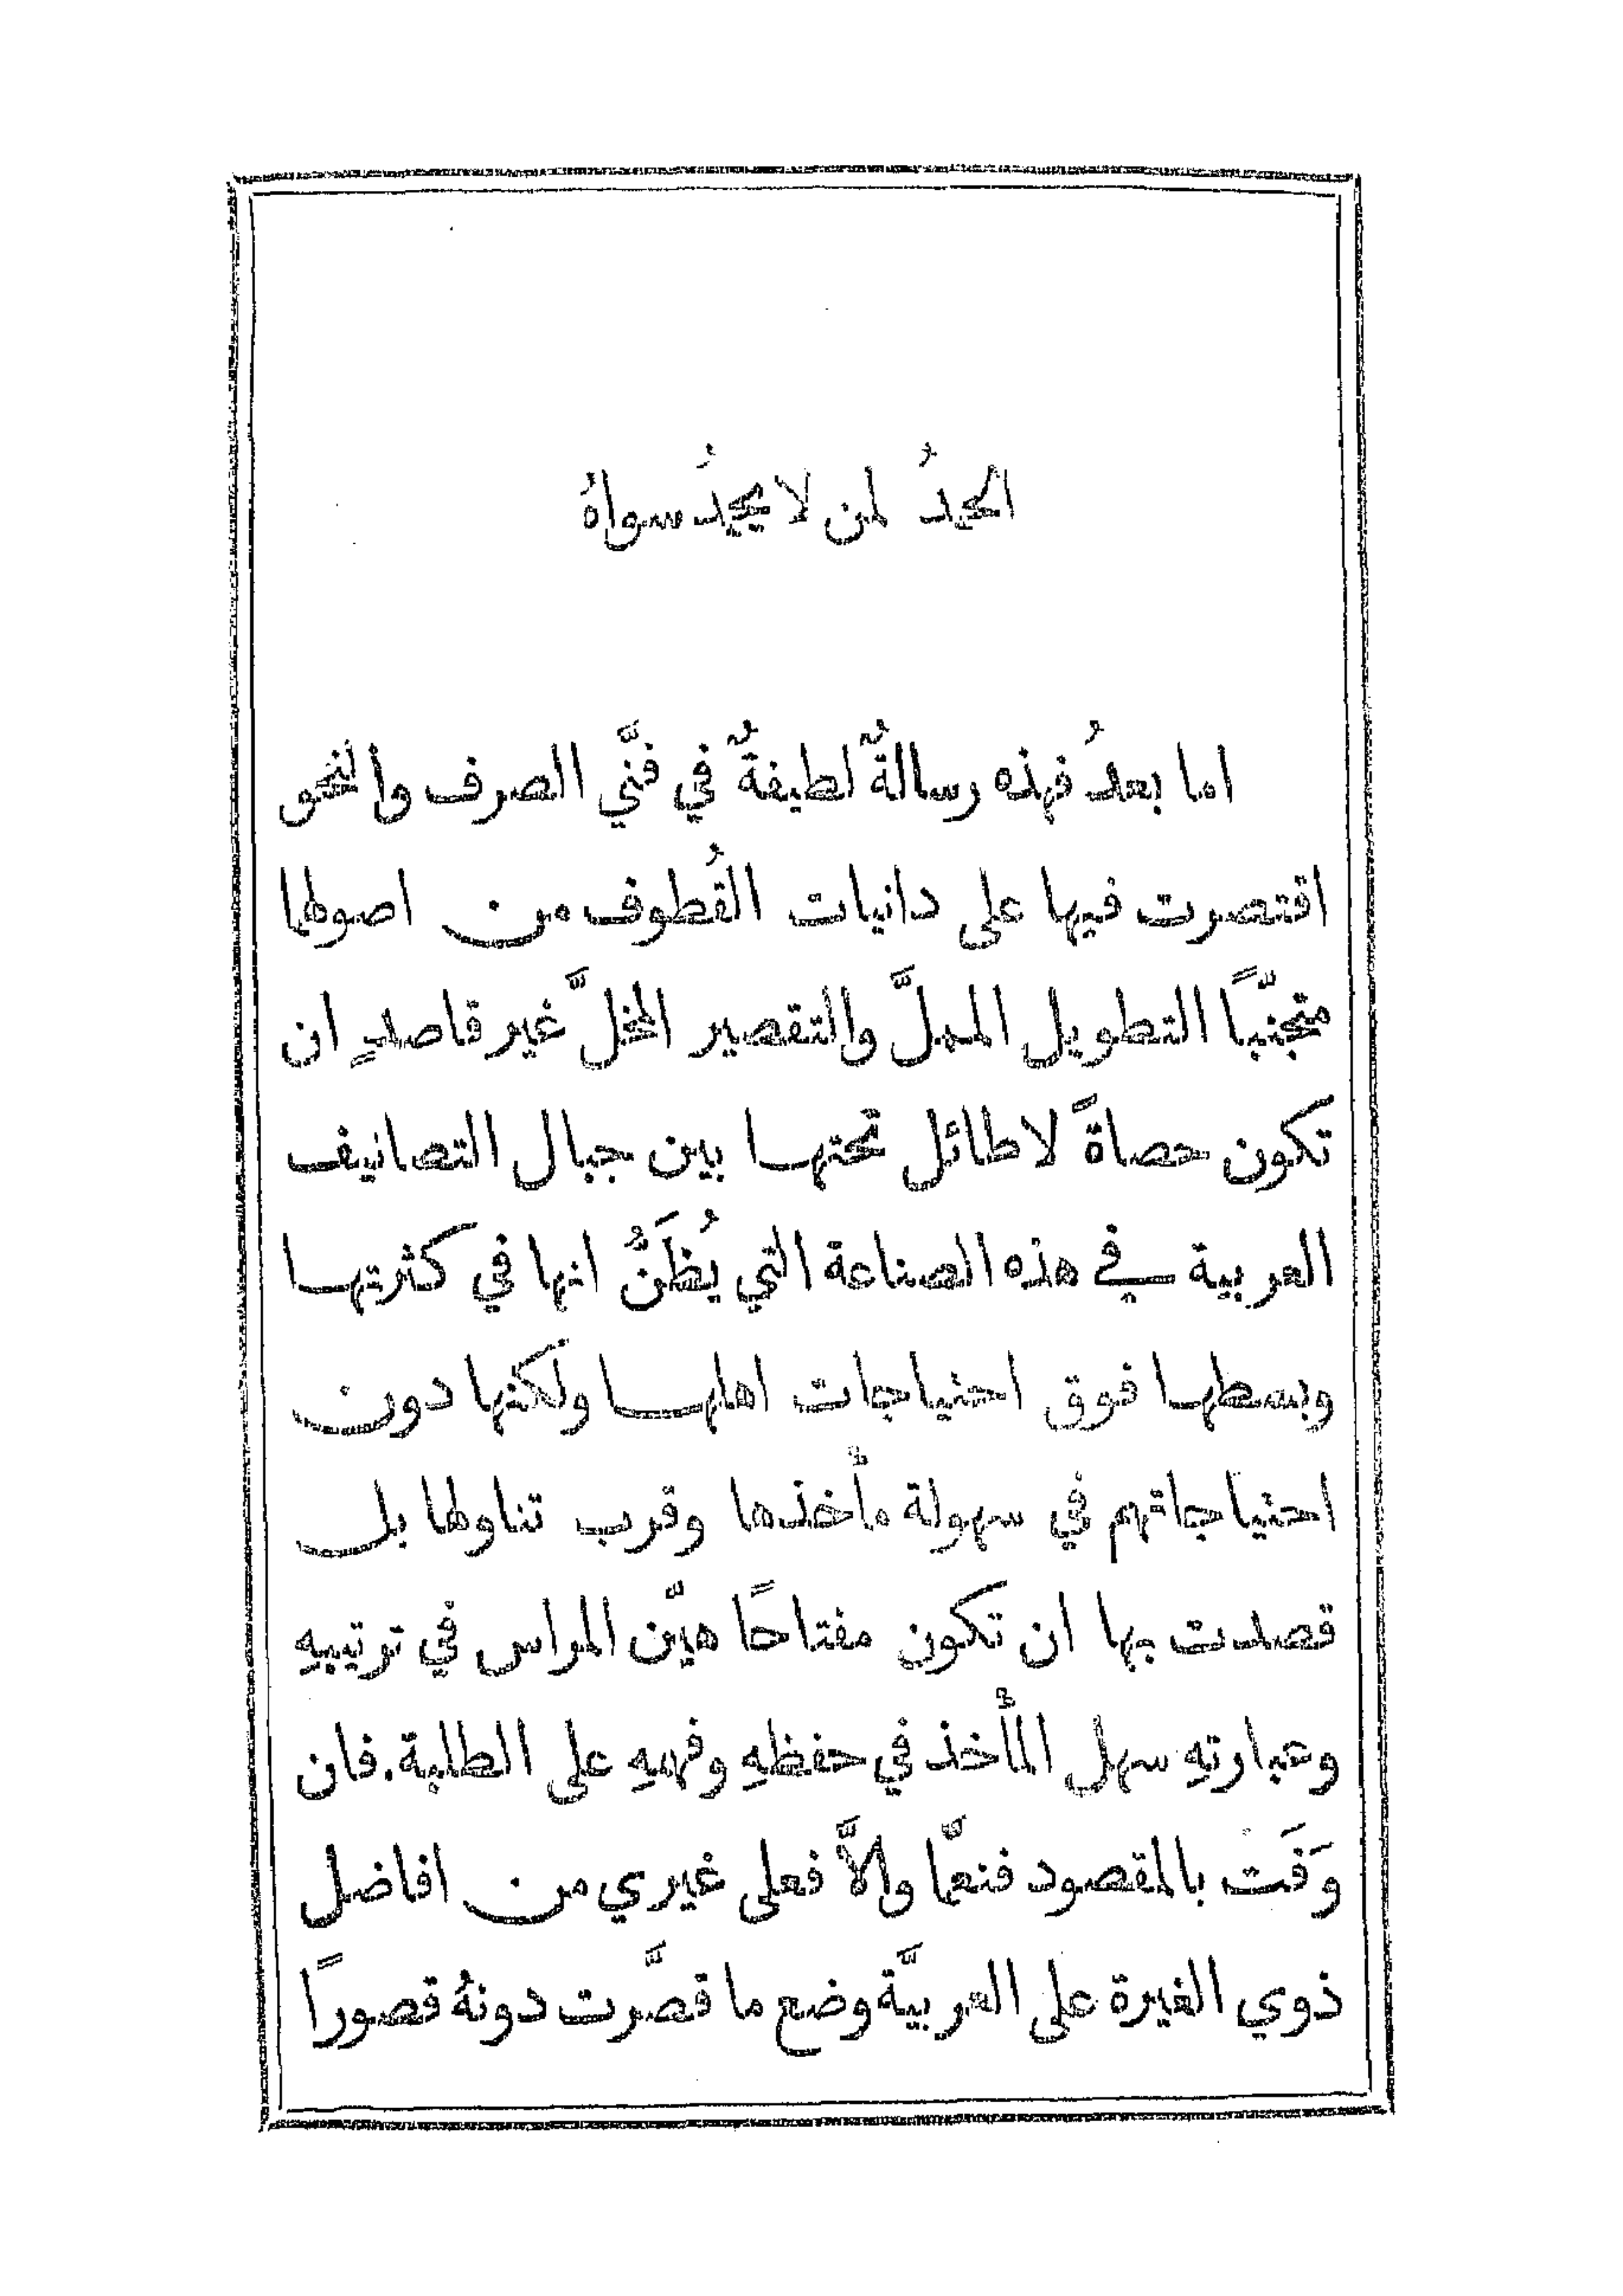 الحمدُ لمن لا يحمدُ سواهُ
اما بعدُ فهذه رسالةٌ لطيفةٌ في فنَّي الصرف والنحو
اقتصرت فيها على دانيات القُطوف من اصولها
متجنّبًا التطويل المملَّ والتقصير المخلَّ غير قاصدٍ ان
تكون حصاةً لا طائل تحتها بين جبال التصانيف
العربية في هذه الصناعة التي يُظَنُّ انها في كثرتها
وبسطها فوق احتياجات اهلها ولكنها دون
احتياجاتهم في سهولة مأخذها وقرب تناولها بل
قصدت بها ان تكون مفتاحًا هيّن المراس في ترتيبهِ
وعبارتهِ سهل المأخذ في حفظهِ وفهمهِ على الطلبة. فان
وَفَتْ بالمقصود فنعمّا والاَّ فعلى غيري من افاضل
ذوي الغيرة على العربيَّة وضع ما قصَّرت دونهُ قصورًا